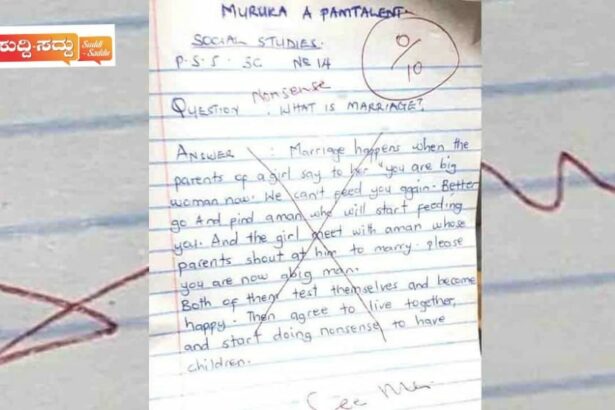 ಸುದ್ದಿ-ಸದ್ದು
Suddi
-Saddu
MURUKA A PAMTALENT.
SOCIAL STUDIES.
P.S.S. 3C No 14
0/10
Nonsense
QUESTION. WHAT IS MARRIAGE?
ANSWER : Marriage happens when the
parents of a girl say to her "you are big
woman now. We can't feed you again. Better
go And find a man who will start feeding
you. And the girl meet with a man whose
parents shout at him to marry. please
you are now a big man.
Both of them test themselves and become
happy. Then agree to live together,
and start doing nonsense to have
children.
See Me